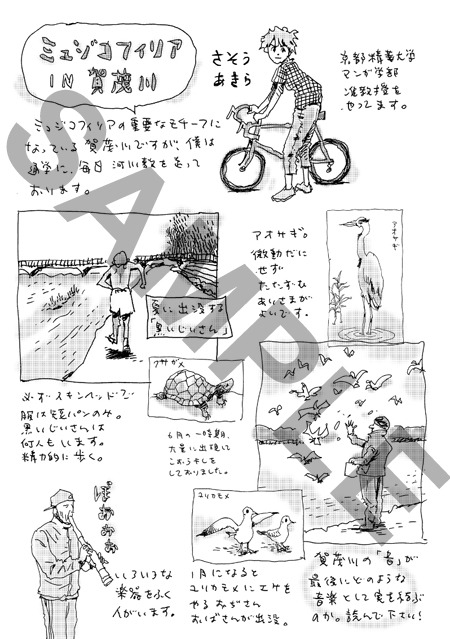 ミュジコフィリア
IN 賀茂川
さそう
あきら
京都精華大学
マンガ学部
准教授を
やってます。
ミュジコフィリアの重要なモチーフに
なっている賀茂川ですが、僕は
通学に、毎日河川敷を走って
おります。
アオサギ。
微動だに
せず
たたずむ
あいさまが
よいです。
アオサギ
夏に出没する
「黒いじいさん」
必ずスキンヘッドで
服は短パンのみ。
黒いじいさんは
何人もいます。
精力的に歩く。
クサガメ
6月の一時期、
大量に出現して
こうらぼしを
しておりました。
ユリカモメ
1月になると
ユリカモメにエサを
やるおじさん
おばさんが出没。
ぼおおお
いろいろな
楽器をふく
人がいます。
賀茂川の「音」が
最後にどのような
音楽として実を結ぶ
のか。読んで下さい！
SAMPLE